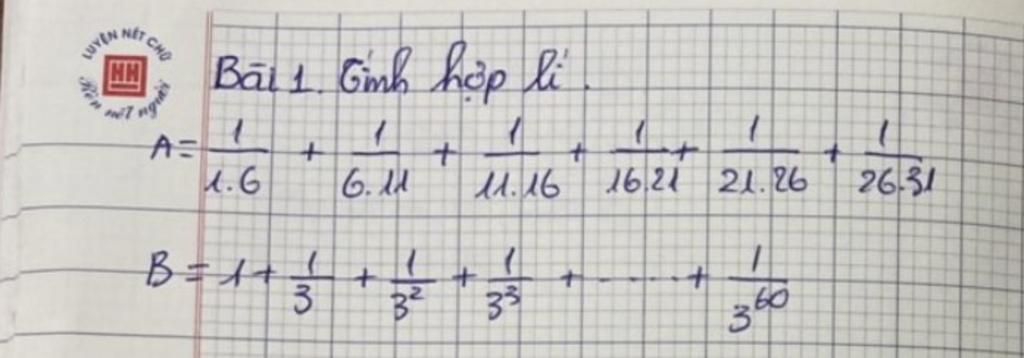 LUYỆN NÉT CHỮ
HH
Rèn nết người
Bài 1. Tính hợp lí.
A = 1/1.6 + 1/6.11 + 1/11.16 + 1/16.21 + 1/21.26 + 1/26.31
B = 1 + 1/3 + 1/3² + 1/3³ + ..... + 1/3⁶⁰